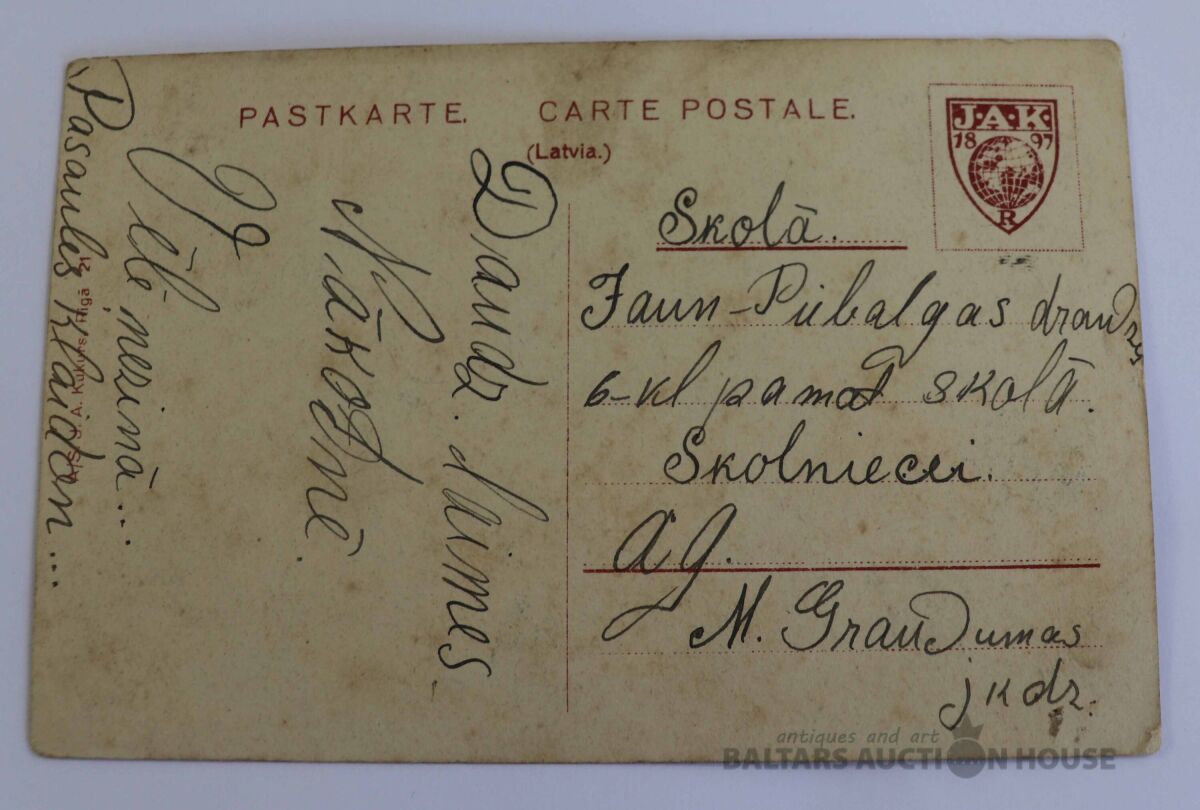 PASTKARTE. CARTE POSTALE.
(Latvia.)
J.A.K.
18 97
R
Skolā.
Jaun-Piebalgas draudzes
6-kl pamat skolā.
Skolniecei.
M. Graudumas
jkdz.
Daudz laimes
Nākotnē
Jēlē nezinā...
Pasaules klaidon....
A. Kukurs, Rīgā 21
antiques and art
BALTARS AUCTION HOUSE